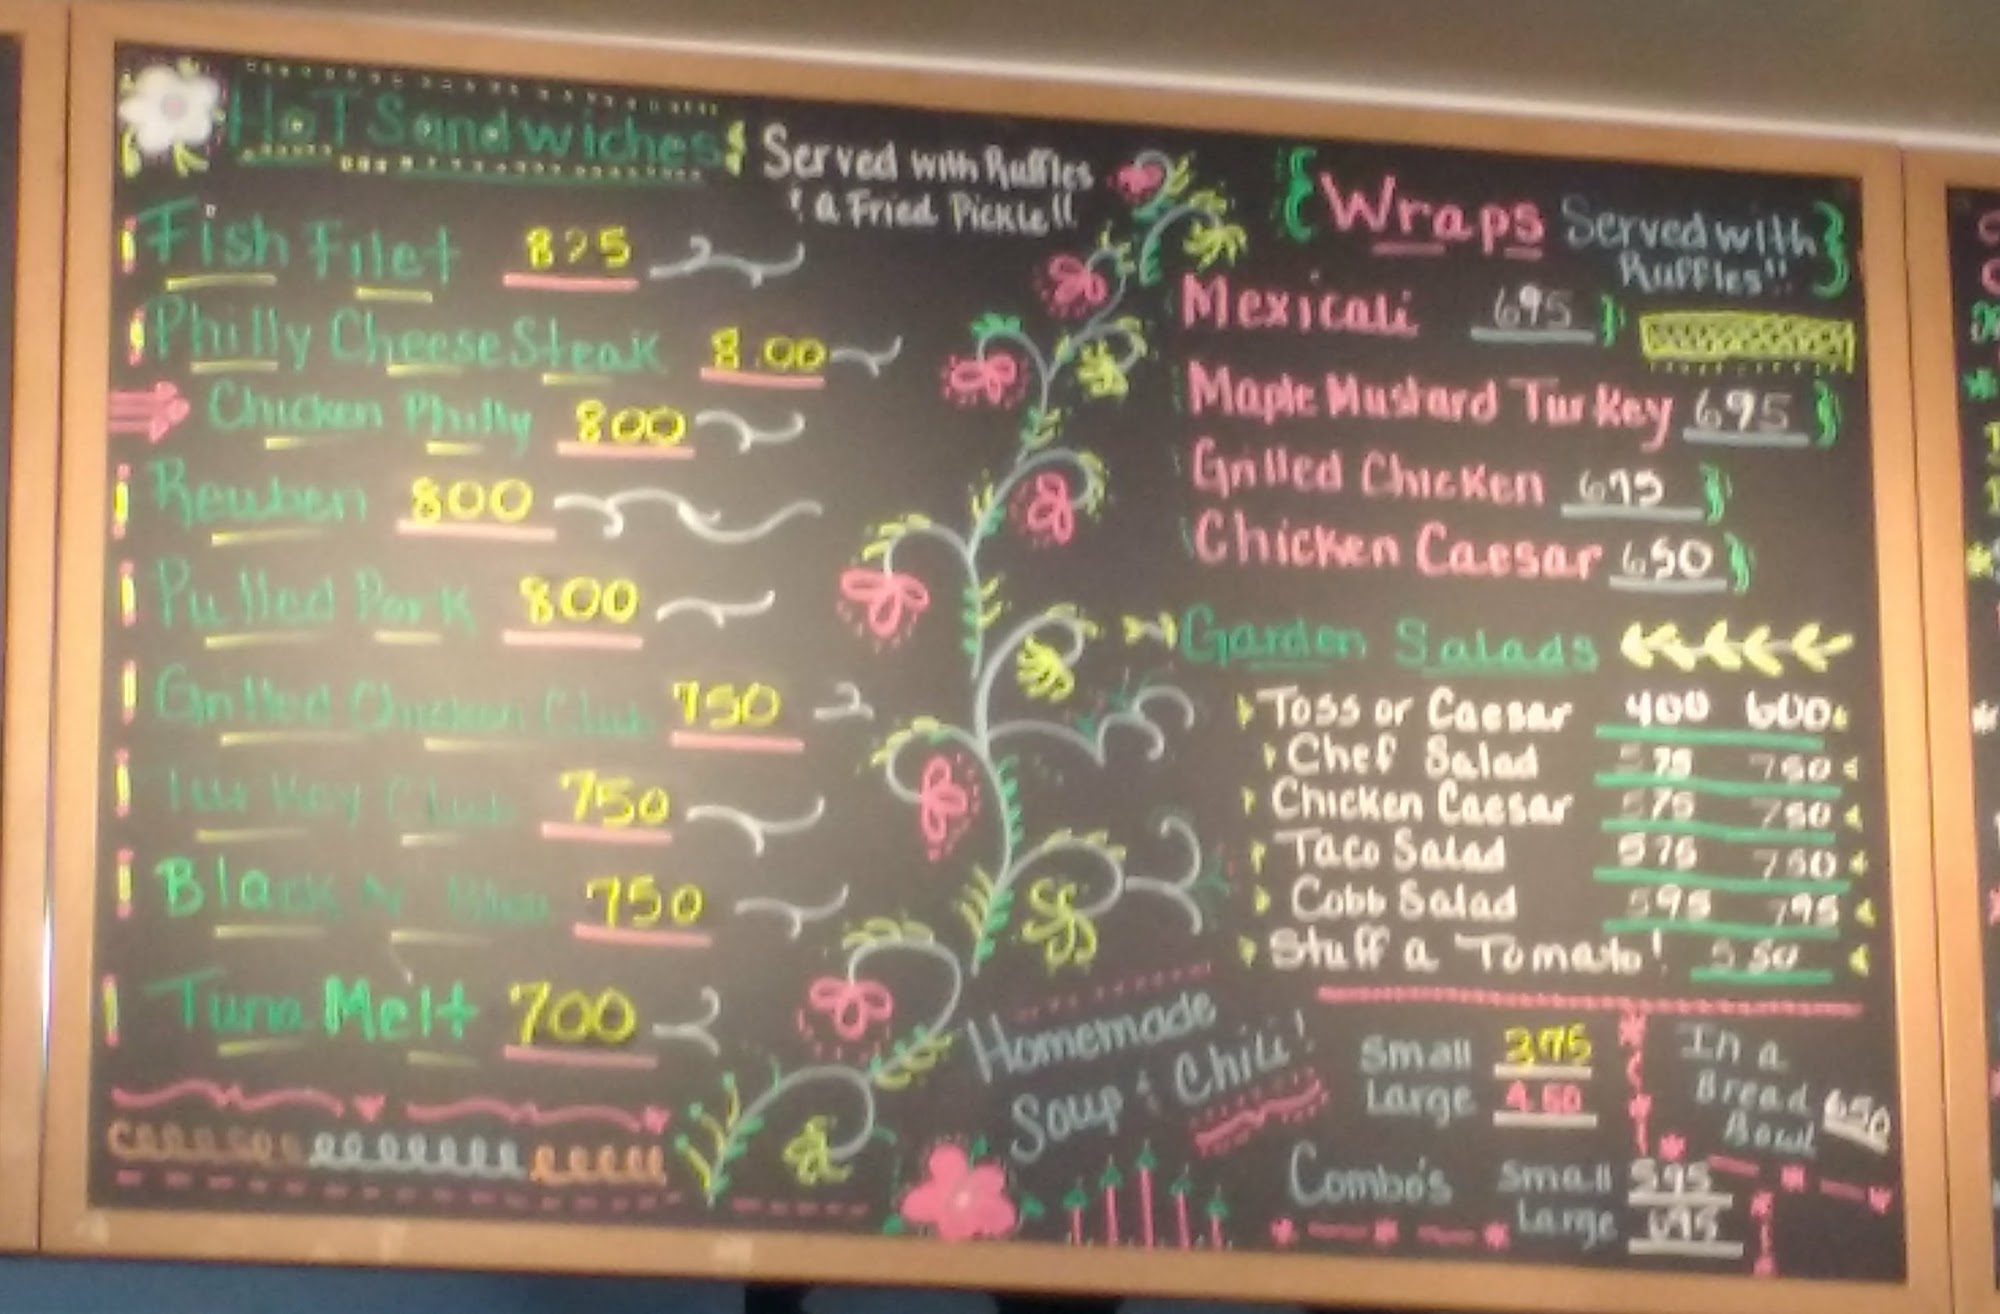 Hot Sandwiches
Served with Ruffles
& a Fried Pickle!!
Fish Filet 825
Philly Cheese Steak 8.00
Chicken Philly 800
Reuben 800
Pulled Pork 800
Grilled Chicken Club 750
Turkey Club 750
Black N Bleu 750
Tuna Melt 700
Wraps Served with
Ruffles!!
Mexicali 695
Maple Mustard Turkey 695
Grilled Chicken 695
Chicken Caesar 650
Garden Salads
Toss or Caesar 400 600
Chef Salad 575 750
Chicken Caesar 575 750
Taco Salad 575 750
Cobb Salad 595 795
Stuff a Tomato! 550
Homemade
Soup & Chili!
Small 375
Large 450
In a
Bread
Bowl 650
Combo's Small 595
Large 695